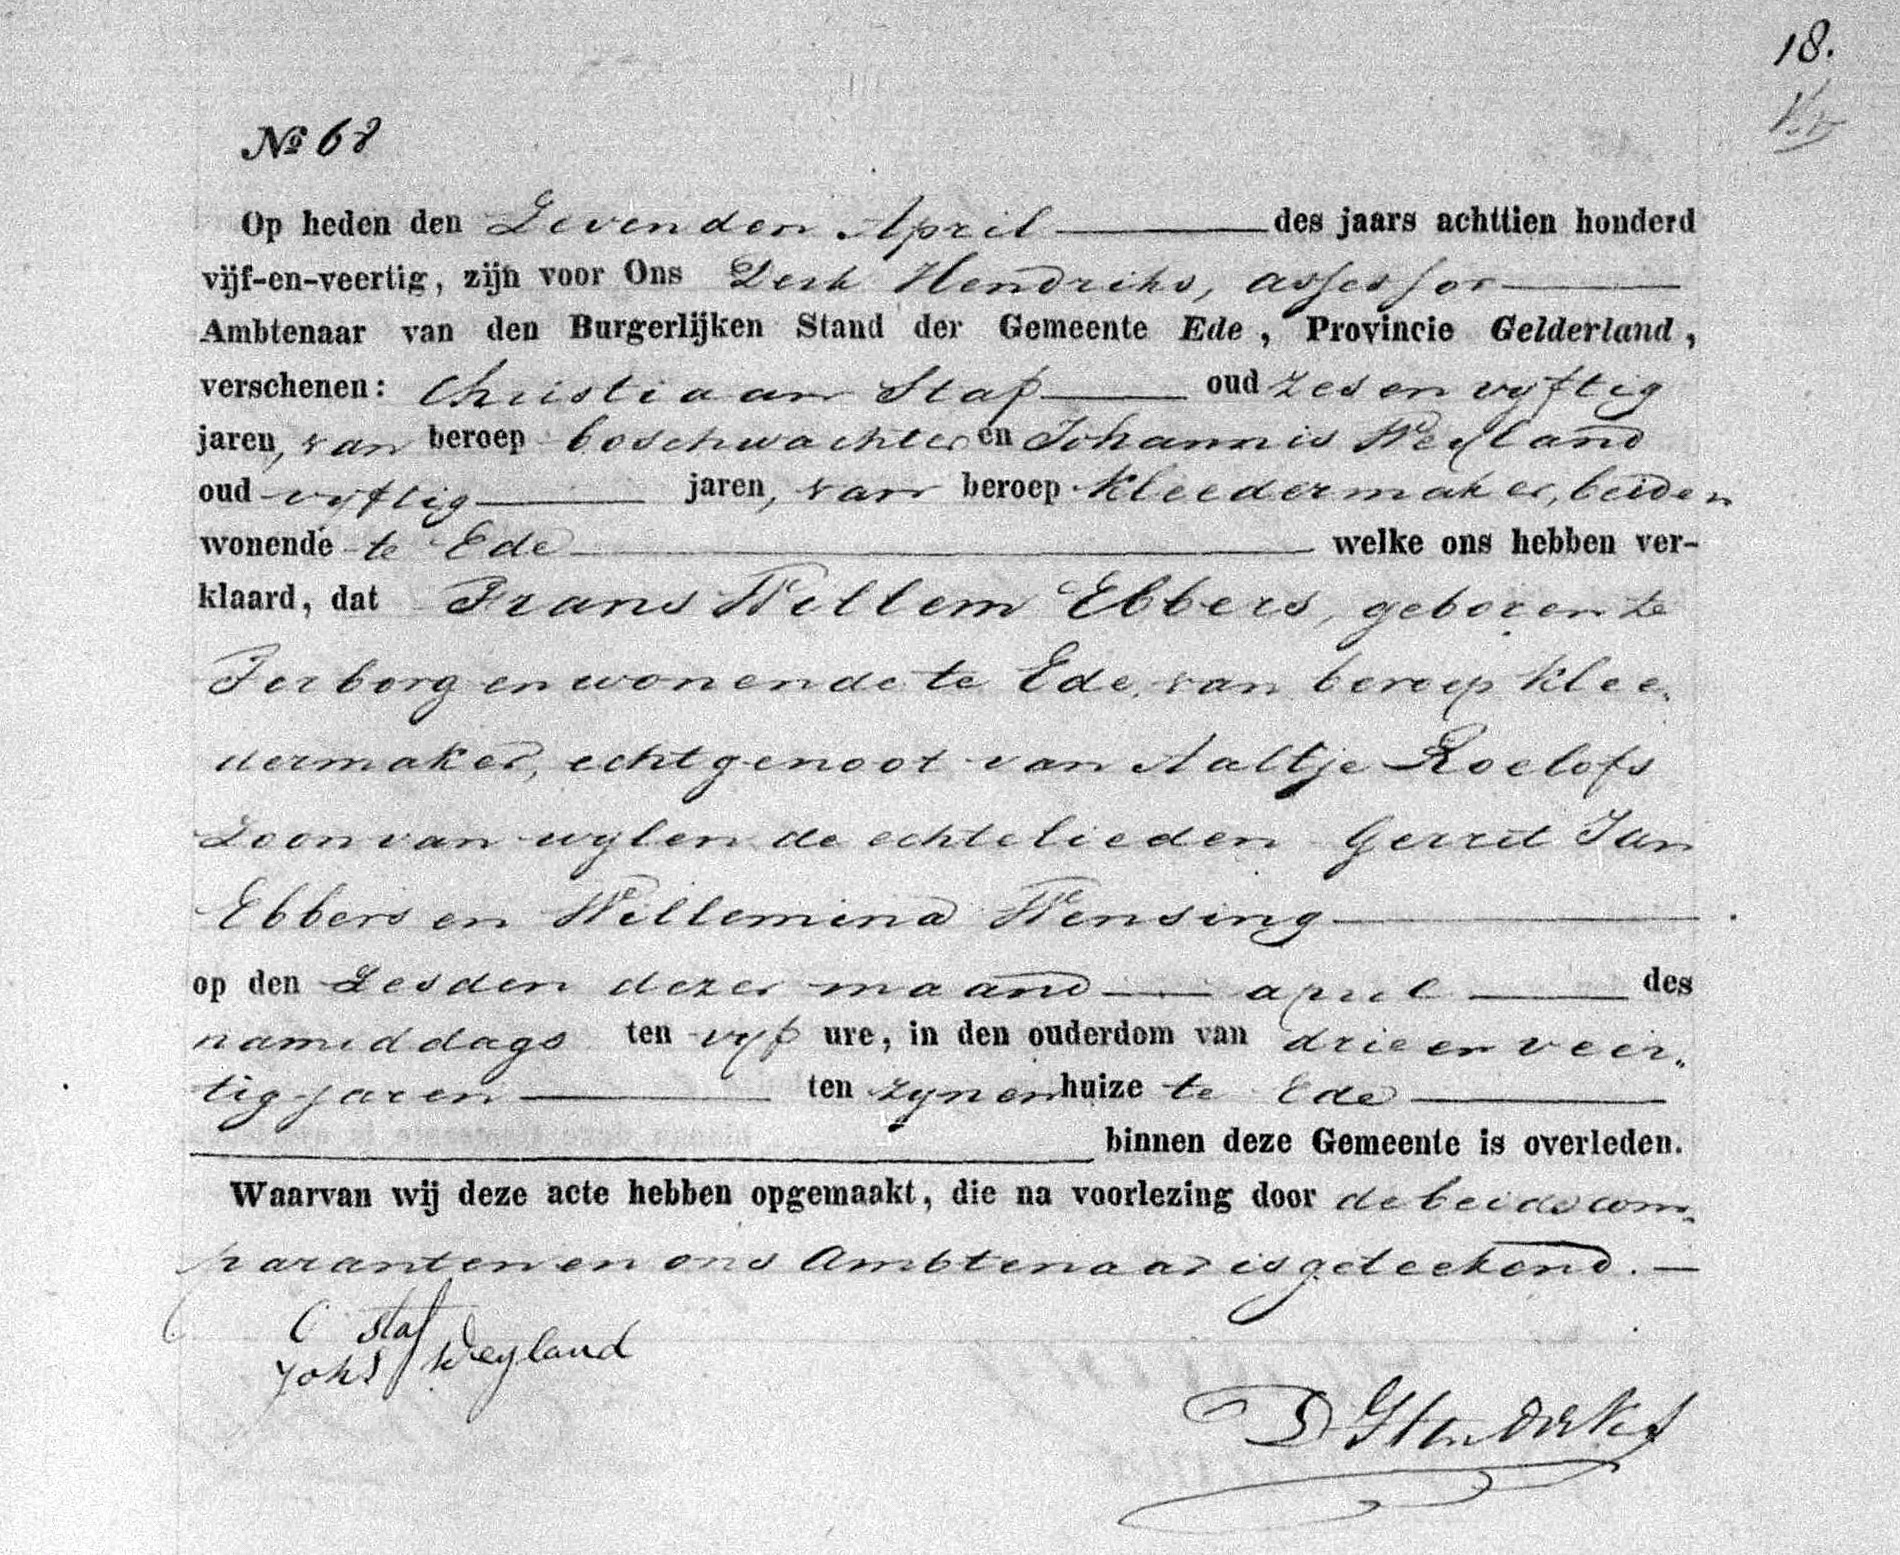 18.
№ 68
Op heden den Zevenden April des jaars achttien honderd
vijf-en-veertig, zijn voor Ons Derk Hendriks, assessor
Ambtenaar van den Burgerlijken Stand der Gemeente Ede, Provincie Gelderland,
verschenen: Christiaan Staf oud zes en vyftig
jaren, van beroep boschwachter en Johannis Weyland
oud vyftig jaren, van beroep kleedermaker, beiden
wonende te Ede welke ons hebben ver-
klaard, dat Frans Willem Ebbers, geboren te
Terborg en wonende te Ede, van beroep klee-
dermaker, echtgenoot van Aaltje Roelofs
Zoon van wylen de echtelieden Gerrit Jan
Ebbers en Willemina Wensing
op den Zesden dezer maand april des
namiddags ten vyf ure, in den ouderdom van drie en veer-
tig jaren ten zynen huize te Ede
binnen deze Gemeente is overleden.
Waarvan wij deze acte hebben opgemaakt, die na voorlezing door de beide com-
paranten en ons Ambtenaar is geteekend.
C Staf
Johs Weyland
D Hendriks